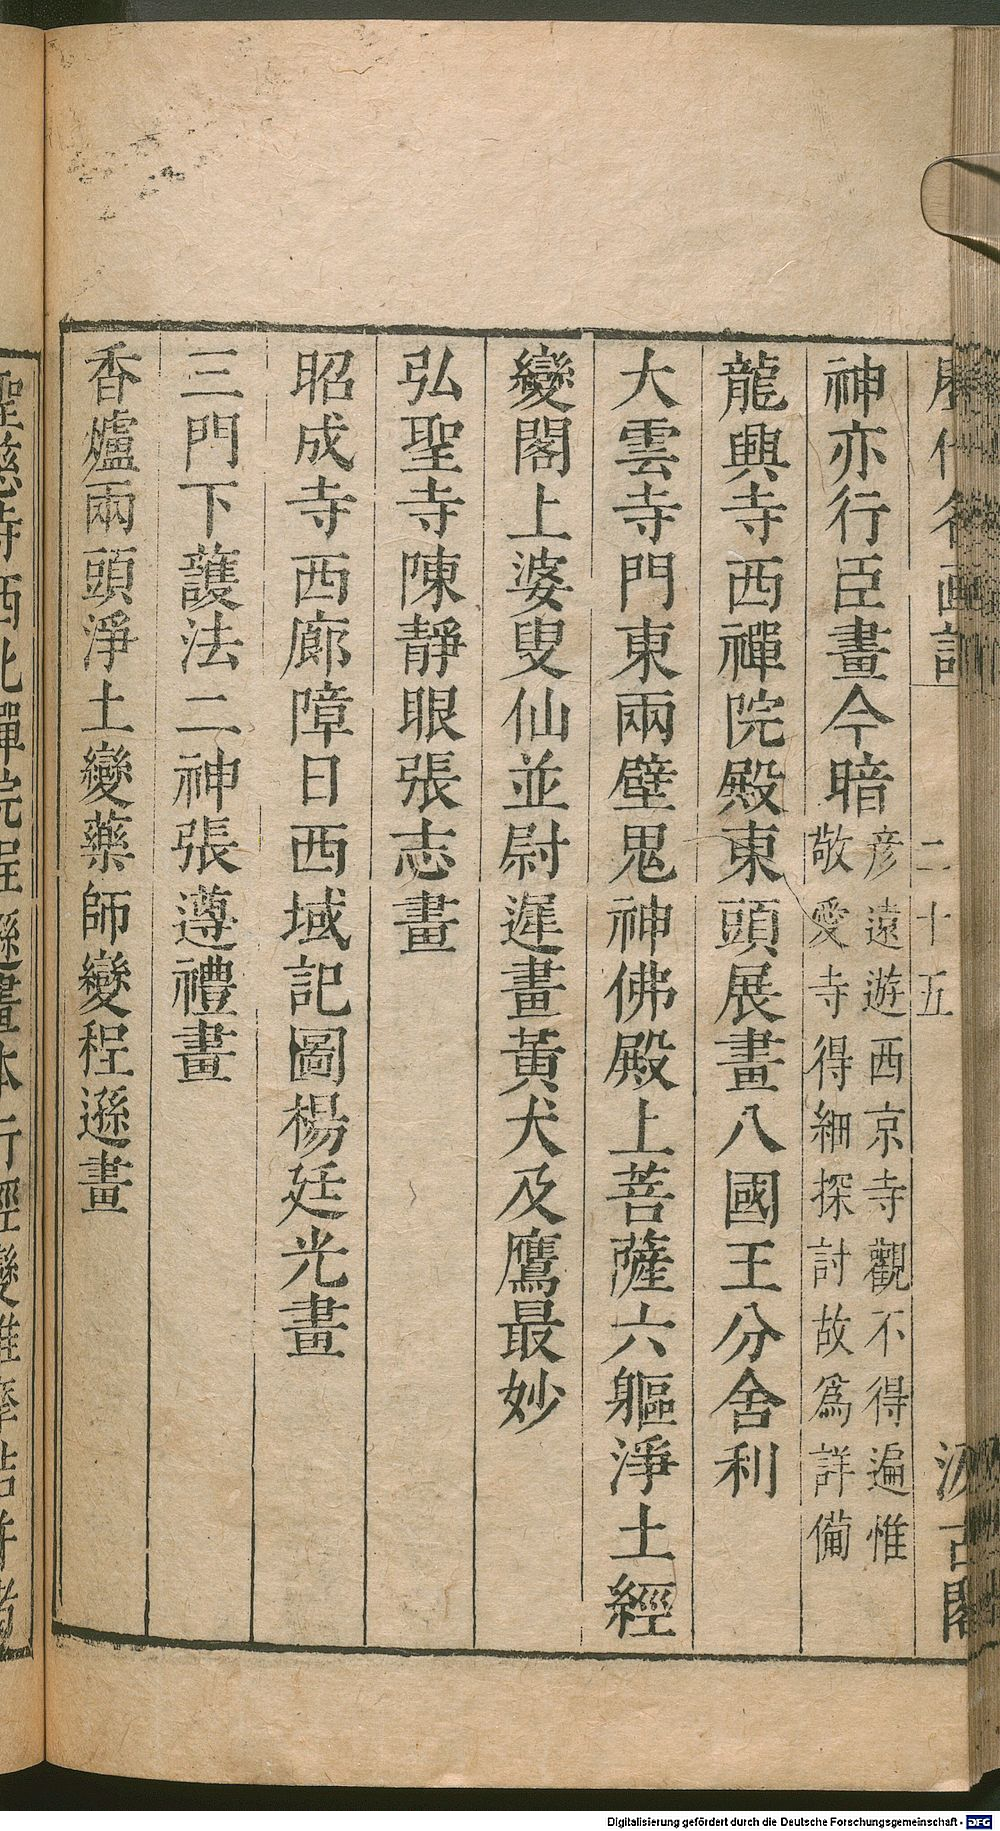 歷代名画記 二十五 汲古閣
神亦行臣畫今暗 彦遠遊西京寺觀不得遍惟
敬愛寺得細探討故爲詳備
龍興寺西禪院殿東頭展畫八國王分舍利
大雲寺門東兩壁鬼神佛殿上菩薩六軀淨土經
變閣上婆叟仙並尉遲畫黃犬及鷹最妙
弘聖寺陳靜眼張志畫
昭成寺西廊障日西域記圖楊廷光畫
三門下護法二神張遵禮畫
香爐兩頭淨土變藥師變程遜畫
聖慈寺西北禪院程遜畫本行經變維摩詰并
Digitalisierung gefördert durch die Deutsche Forschungsgemeinschaft - DFG